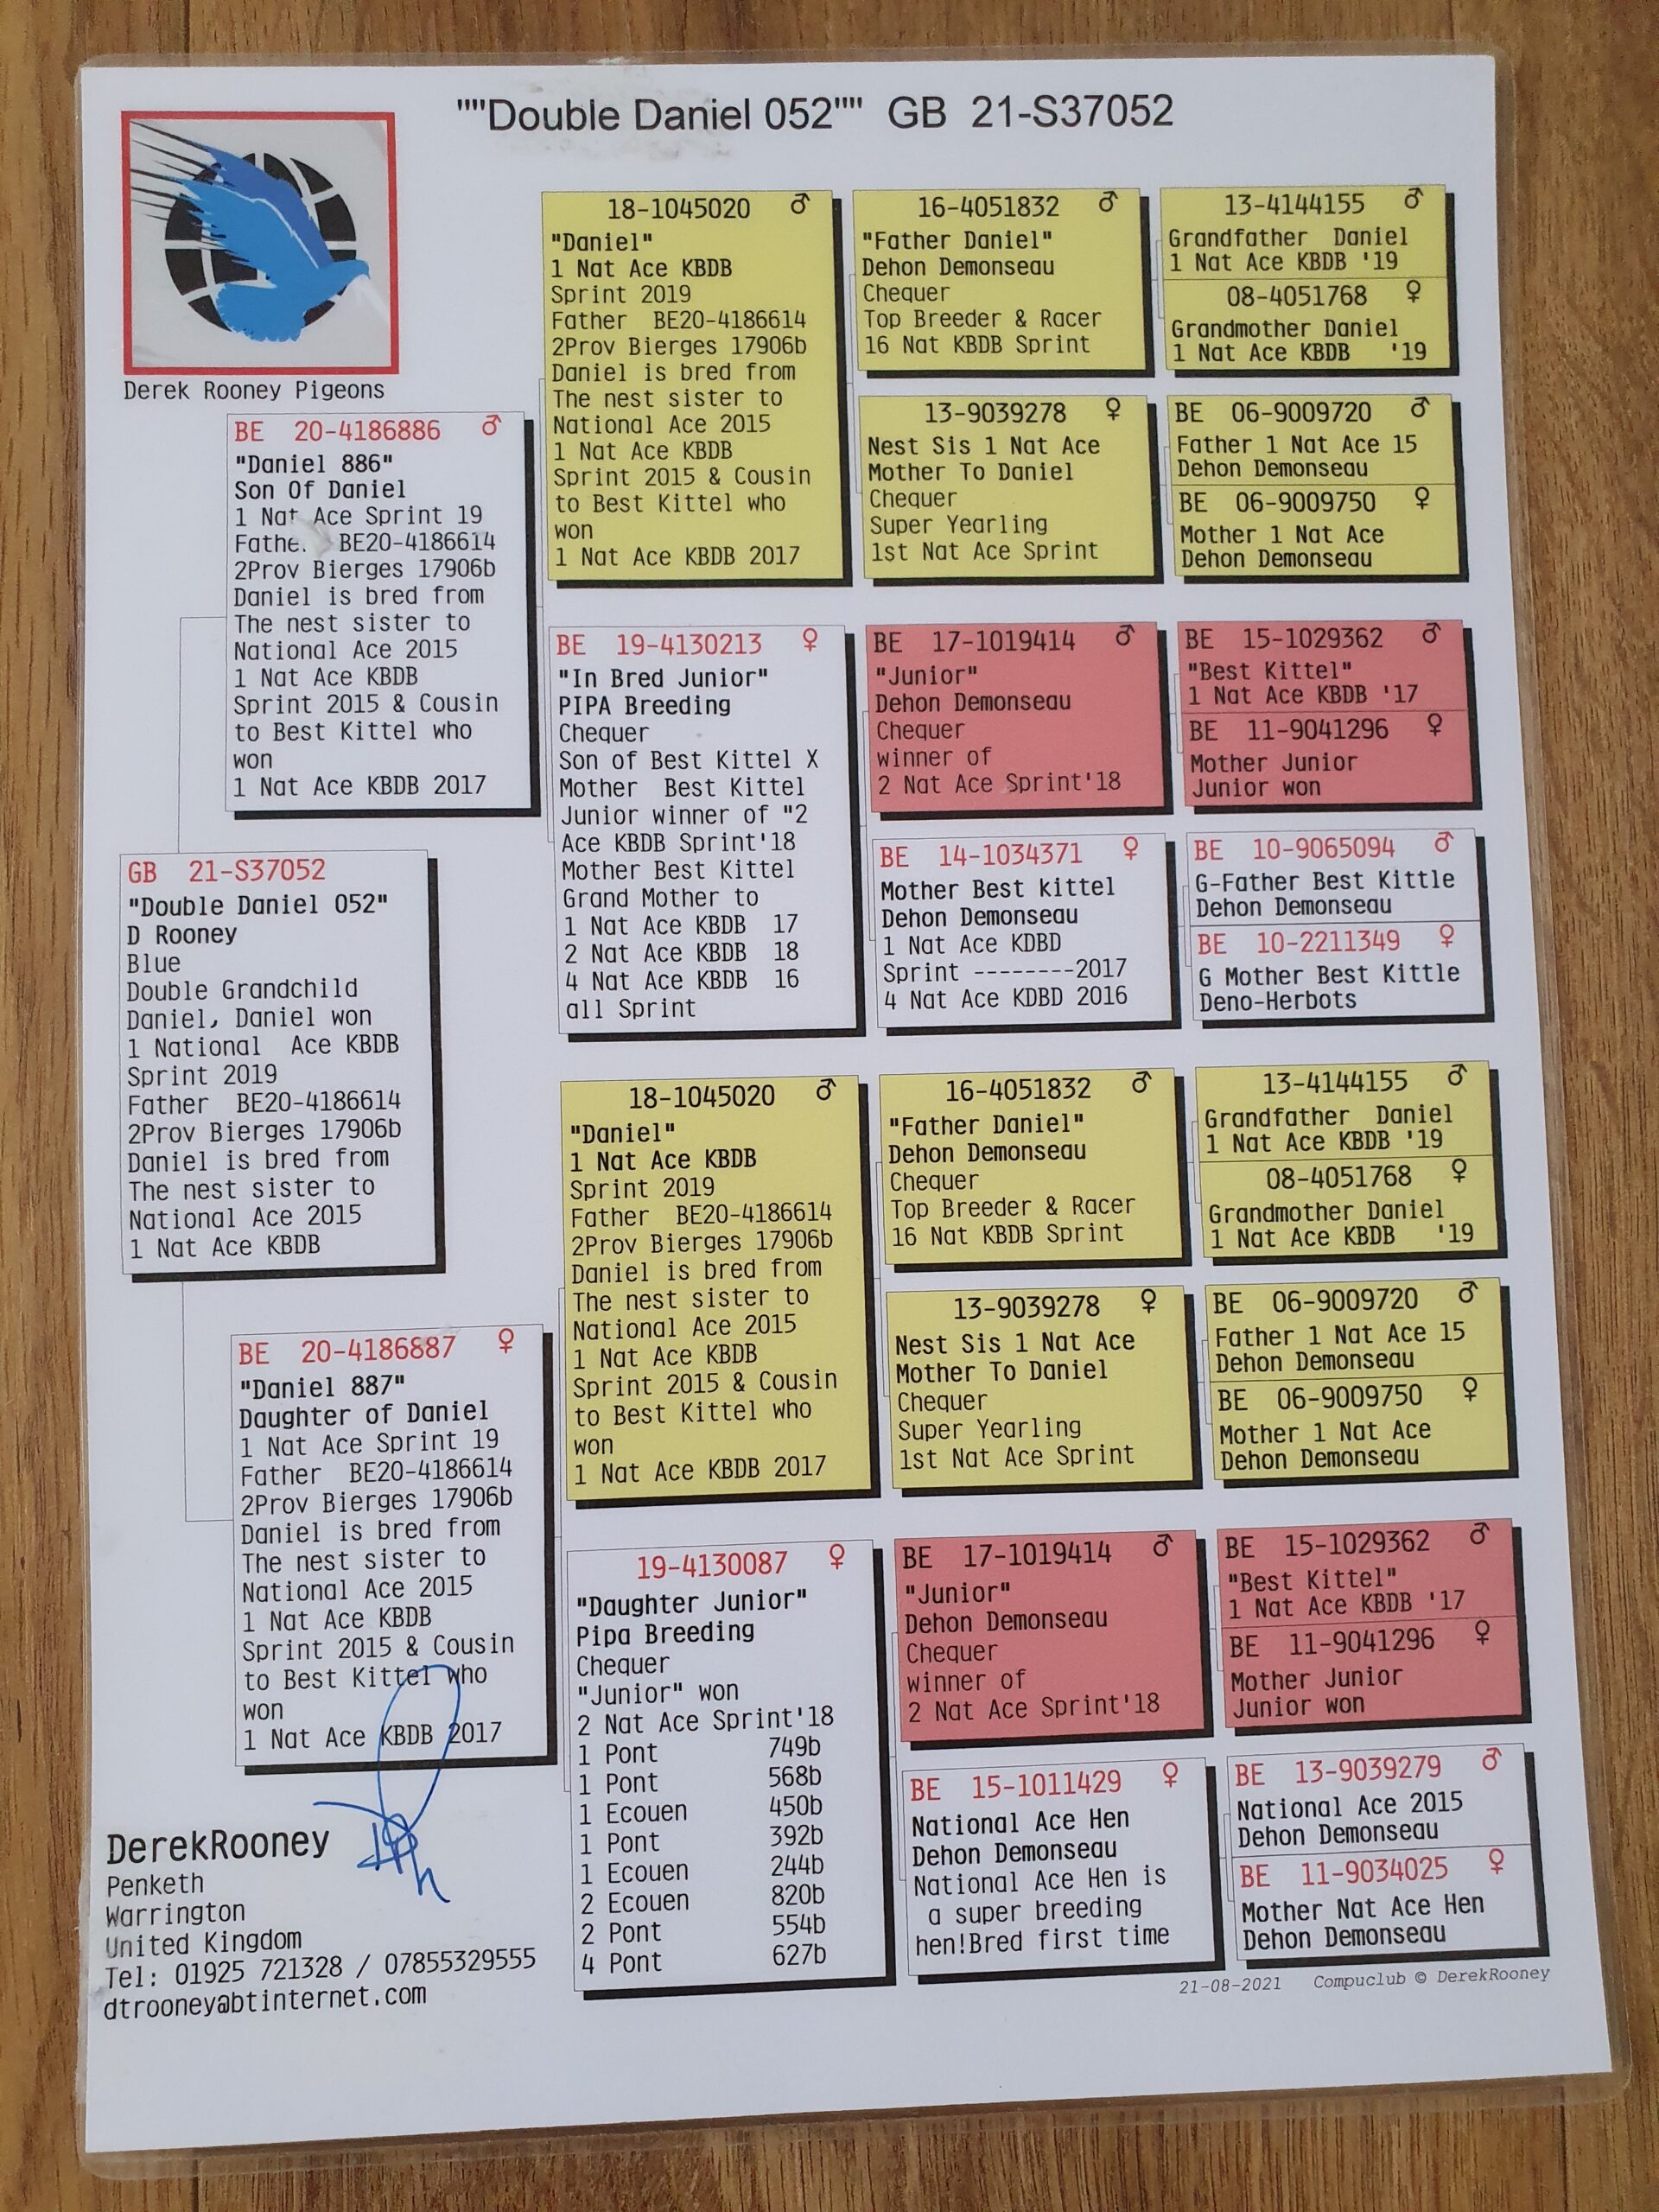 ""Double Daniel 052"" GB 21-S37052
Derek Rooney Pigeons
BE 20-4186886 ♂
"Daniel 886"
Son Of Daniel
1 Nat Ace Sprint 19
Father BE20-4186614
2Prov Bierges 17906b
Daniel is bred from
The nest sister to
National Ace 2015
1 Nat Ace KBDB
Sprint 2015 & Cousin
to Best Kittel who
won
1 Nat Ace KBDB 2017
GB 21-S37052
"Double Daniel 052"
D Rooney
Blue
Double Grandchild
Daniel, Daniel won
1 National Ace KBDB
Sprint 2019
Father BE20-4186614
2Prov Bierges 17906b
Daniel is bred from
The nest sister to
National Ace 2015
1 Nat Ace KBDB
BE 20-4186887 ♀
"Daniel 887"
Daughter of Daniel
1 Nat Ace Sprint 19
Father BE20-4186614
2Prov Bierges 17906b
Daniel is bred from
The nest sister to
National Ace 2015
1 Nat Ace KBDB
Sprint 2015 & Cousin
to Best Kittel who
won
1 Nat Ace KBDB 2017
DerekRooney
Penketh
Warrington
United Kingdom
Tel: 01925 721328 / 07855329555
dtrooney@btinternet.com
18-1045020 ♂
"Daniel"
1 Nat Ace KBDB
Sprint 2019
Father BE20-4186614
2Prov Bierges 17906b
Daniel is bred from
The nest sister to
National Ace 2015
1 Nat Ace KBDB
Sprint 2015 & Cousin
to Best Kittel who
won
1 Nat Ace KBDB 2017
BE 19-4130213 ♀
"In Bred Junior"
PIPA Breeding
Chequer
Son of Best Kittel X
Mother Best Kittel
Junior winner of "2
Ace KBDB Sprint'18
Mother Best Kittel
Grand Mother to
1 Nat Ace KBDB 17
2 Nat Ace KBDB 18
4 Nat Ace KBDB 16
all Sprint
18-1045020 ♂
"Daniel"
1 Nat Ace KBDB
Sprint 2019
Father BE20-4186614
2Prov Bierges 17906b
Daniel is bred from
The nest sister to
National Ace 2015
1 Nat Ace KBDB
Sprint 2015 & Cousin
to Best Kittel who
won
1 Nat Ace KBDB 2017
19-4130087 ♀
"Daughter Junior"
Pipa Breeding
Chequer
"Junior" won
2 Nat Ace Sprint'18
1 Pont 749b
1 Pont 568b
1 Ecouen 450b
1 Pont 392b
1 Ecouen 244b
2 Ecouen 820b
2 Pont 554b
4 Pont 627b
16-4051832 ♂
"Father Daniel"
Dehon Demonseau
Chequer
Top Breeder & Racer
16 Nat KBDB Sprint
13-9039278 ♀
Nest Sis 1 Nat Ace
Mother To Daniel
Chequer
Super Yearling
1st Nat Ace Sprint
BE 17-1019414 ♂
"Junior"
Dehon Demonseau
Chequer
winner of
2 Nat Ace Sprint'18
BE 14-1034371 ♀
Mother Best kittel
Dehon Demonseau
1 Nat Ace KDBD
Sprint --------2017
4 Nat Ace KDBD 2016
16-4051832 ♂
"Father Daniel"
Dehon Demonseau
Chequer
Top Breeder & Racer
16 Nat KBDB Sprint
13-9039278 ♀
Nest Sis 1 Nat Ace
Mother To Daniel
Chequer
Super Yearling
1st Nat Ace Sprint
BE 17-1019414 ♂
"Junior"
Dehon Demonseau
Chequer
winner of
2 Nat Ace Sprint'18
BE 15-1011429 ♀
National Ace Hen
Dehon Demonseau
National Ace Hen is
a super breeding
hen!Bred first time
13-4144155 ♂
Grandfather Daniel
1 Nat Ace KBDB '19
08-4051768 ♀
Grandmother Daniel
1 Nat Ace KBDB '19
BE 06-9009720 ♂
Father 1 Nat Ace 15
Dehon Demonseau
BE 06-9009750 ♀
Mother 1 Nat Ace
Dehon Demonseau
BE 15-1029362 ♂
"Best Kittel"
1 Nat Ace KBDB '17
BE 11-9041296 ♀
Mother Junior
Junior won
BE 10-9065094 ♂
G-Father Best Kittle
Dehon Demonseau
BE 10-2211349 ♀
G Mother Best Kittle
Deno-Herbots
13-4144155 ♂
Grandfather Daniel
1 Nat Ace KBDB '19
08-4051768 ♀
Grandmother Daniel
1 Nat Ace KBDB '19
BE 06-9009720 ♂
Father 1 Nat Ace 15
Dehon Demonseau
BE 06-9009750 ♀
Mother 1 Nat Ace
Dehon Demonseau
BE 15-1029362 ♂
"Best Kittel"
1 Nat Ace KBDB '17
BE 11-9041296 ♀
Mother Junior
Junior won
BE 13-9039279 ♂
National Ace 2015
Dehon Demonseau
BE 11-9034025 ♀
Mother Nat Ace Hen
Dehon Demonseau
21-08-2021 Compuclub © DerekRooney